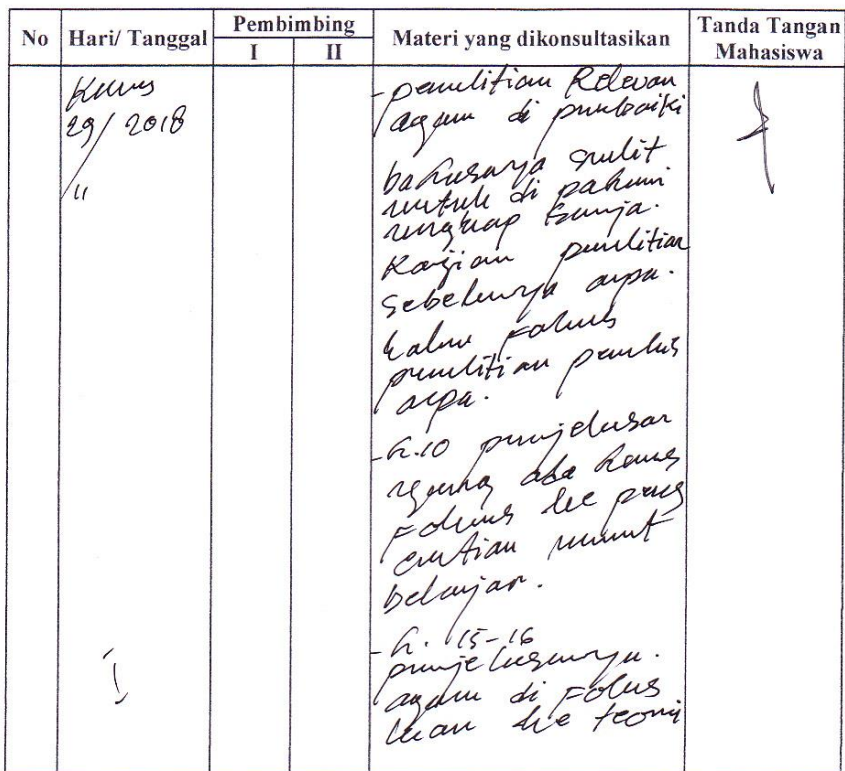 No Hari/ Tanggal Pembimbing Materi yang dikonsultasikan Tanda Tangan Mahasiswa
I II
Kamis
29/ 2018
/11
- penelitian Relevan
agar di perbaiki
bahasanya sulit
untuk di pahami
Kajian penelitian
Sebelumnya apa.
kalau Fokus
penelitian penulis
apa.
- h.10 penjelasan
yang ada harus
Fokus ke peng
ertian minat
belajar.
- h. 15-16
penjelasannya.
agar di Fokus
kan ke teori